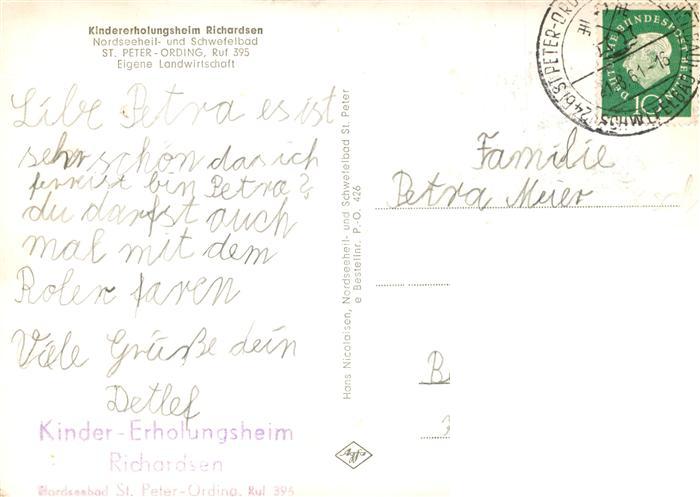 Kindererholungsheim Richardsen
Nordseeheil- und Schwefelbad
ST. PETER-ORDING, Ruf 395
Eigene Landwirtschaft
Libe Petra es ist
sehr schön das ich
ferreist bin Petra?
du darfst auch
mal mit dem
Roler faren
Viele Grüße dein
Detlef
Kinder-Erholungsheim
Richardsen
Nordseebad St. Peter-Ording, Ruf 395
Hans Nicolaisen, Nordseeheil- und Schwefelbad St. Peter
e Bestellnr. P.-O. 426
Agfa
DEUTSCHE BUNDESPOST BERLIN
10
ST PETER-ORDING
Familie
Petra Meier
B